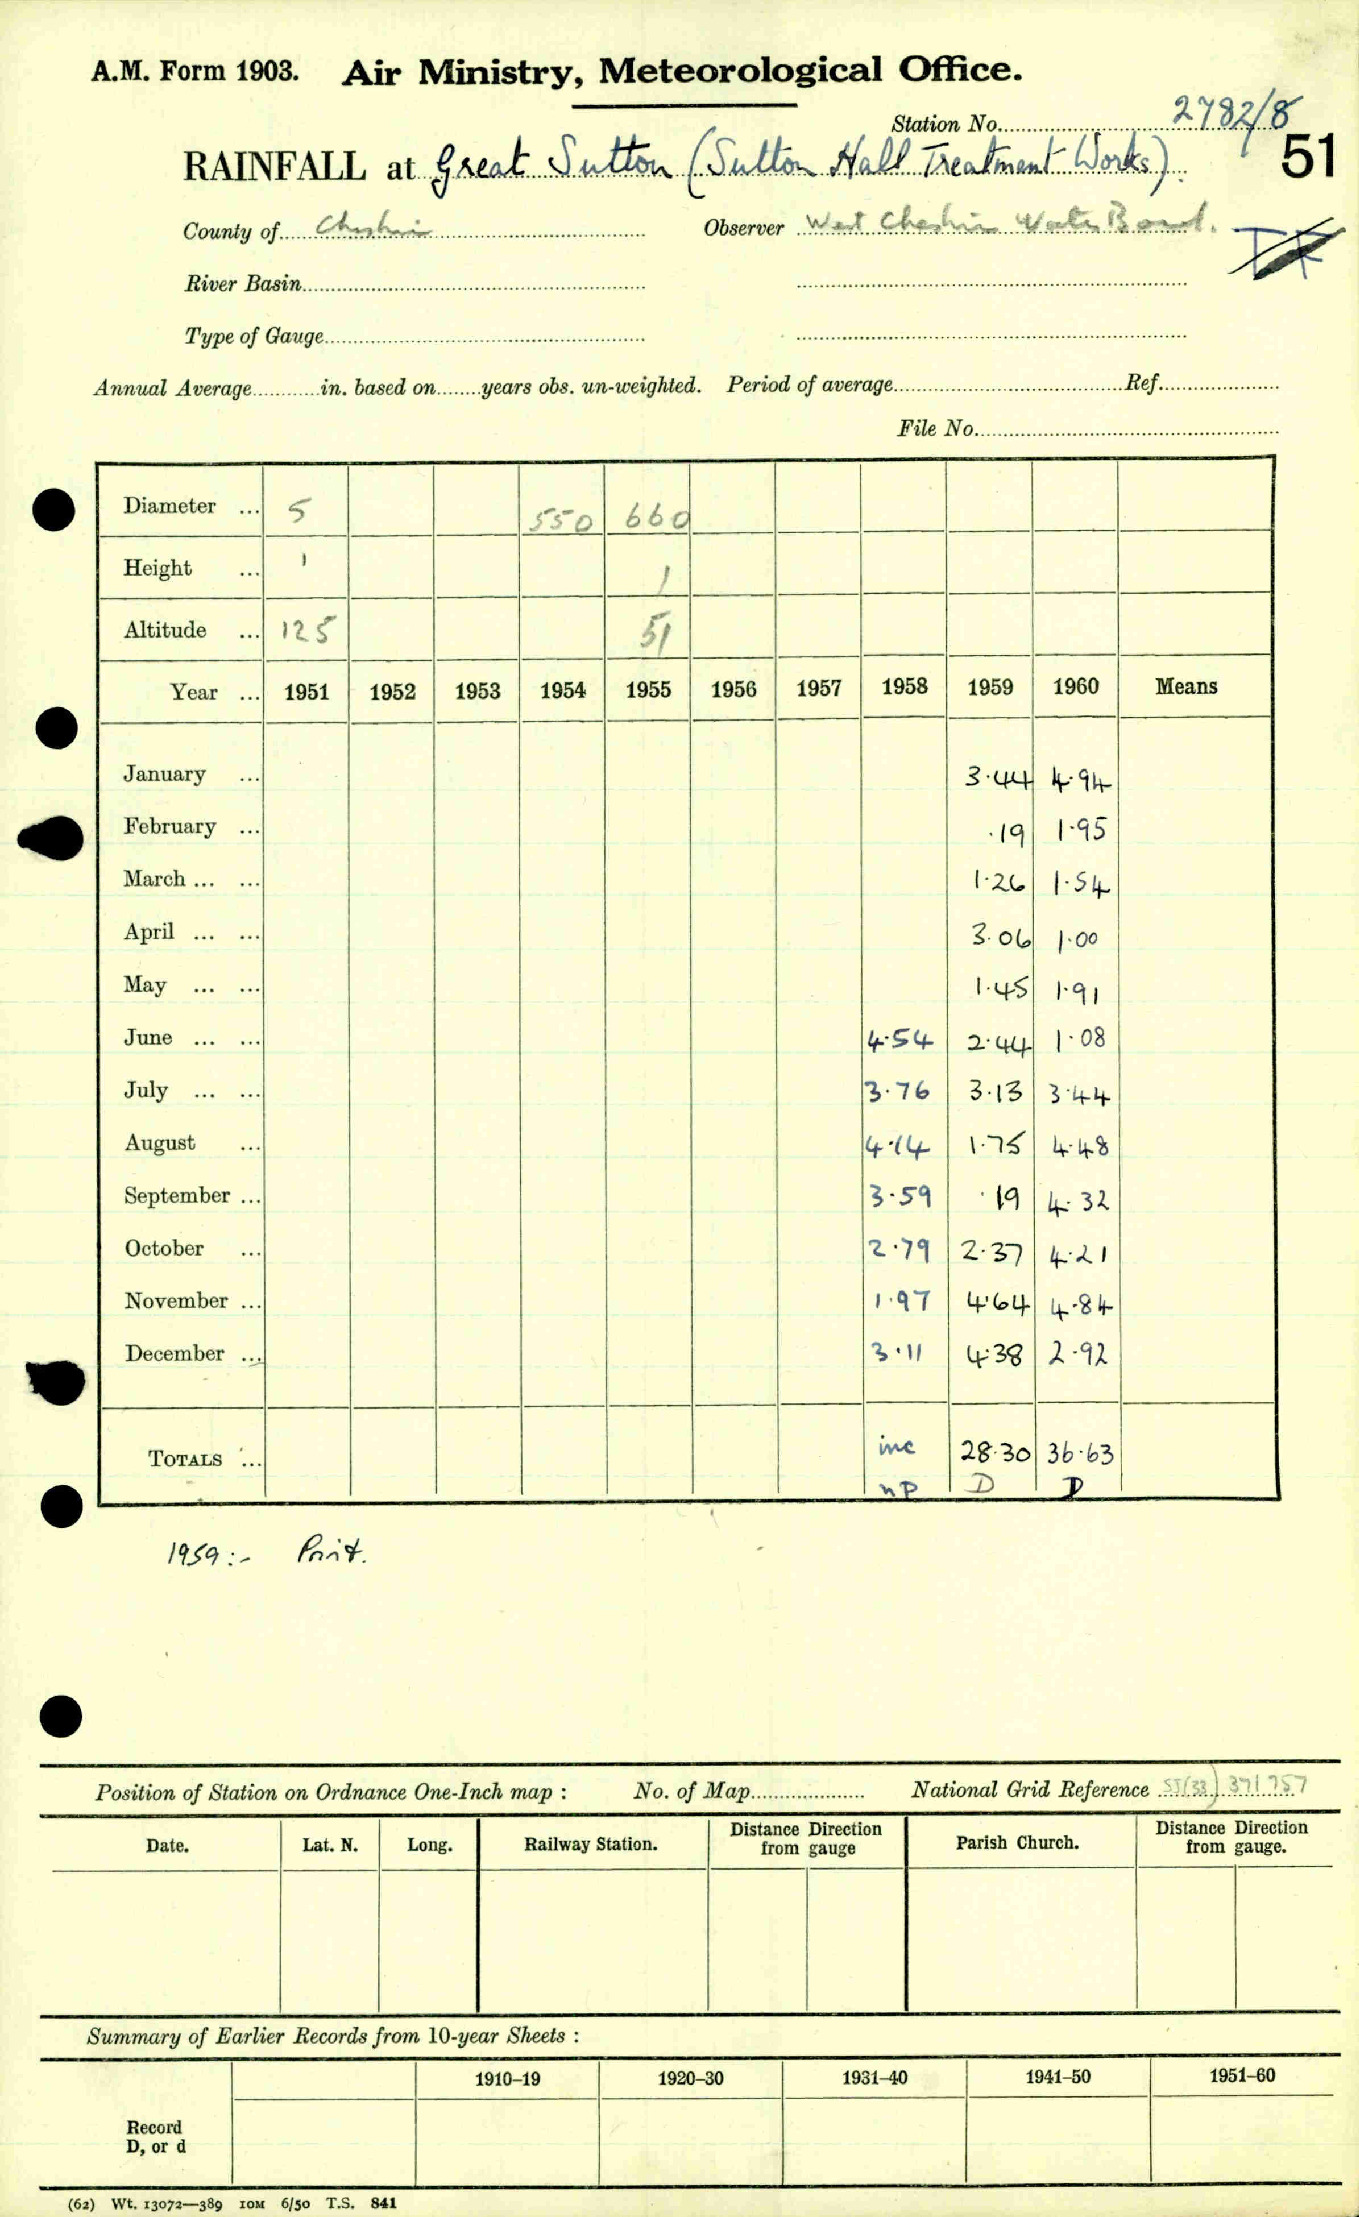 A.M. Form 1903. Air Ministry, Meteorological Office.
Station No. 2782/8
RAINFALL at Great Sutton (Sutton Hall Treatment Works). 51
County of Cheshire Observer West Cheshire Water Board.
River Basin
Type of Gauge
Annual Average in. based on years obs. un-weighted. Period of average Ref.
File No.
Diameter ... 5 550 660
Height ... 1 1
Altitude ... 125 51
Year ... 1951 1952 1953 1954 1955 1956 1957 1958 1959 1960 Means
January ... 3.44 4.94
February ... .19 1.95
March ... ... 1.26 1.54
April ... ... 3.06 1.00
May ... ... 1.45 1.91
June ... ... 4.54 2.44 1.08
July ... ... 3.76 3.13 3.44
August ... 4.14 1.75 4.48
September ... 3.59 .19 4.32
October ... 2.79 2.37 4.21
November ... 1.97 4.64 4.84
December ... 3.11 4.38 2.92
TOTALS ... inc 28.30 36.63
np D D
1959:- Print.
Position of Station on Ordnance One-Inch map : No. of Map National Grid Reference SJ(33) 371757
Date. Lat. N. Long. Railway Station. Distance Direction from gauge Parish Church. Distance Direction from gauge.
Summary of Earlier Records from 10-year Sheets :
1910–19 1920–30 1931–40 1941–50 1951–60
Record
D, or d
(62) Wt. 13072—389 10M 6/50 T.S. 841